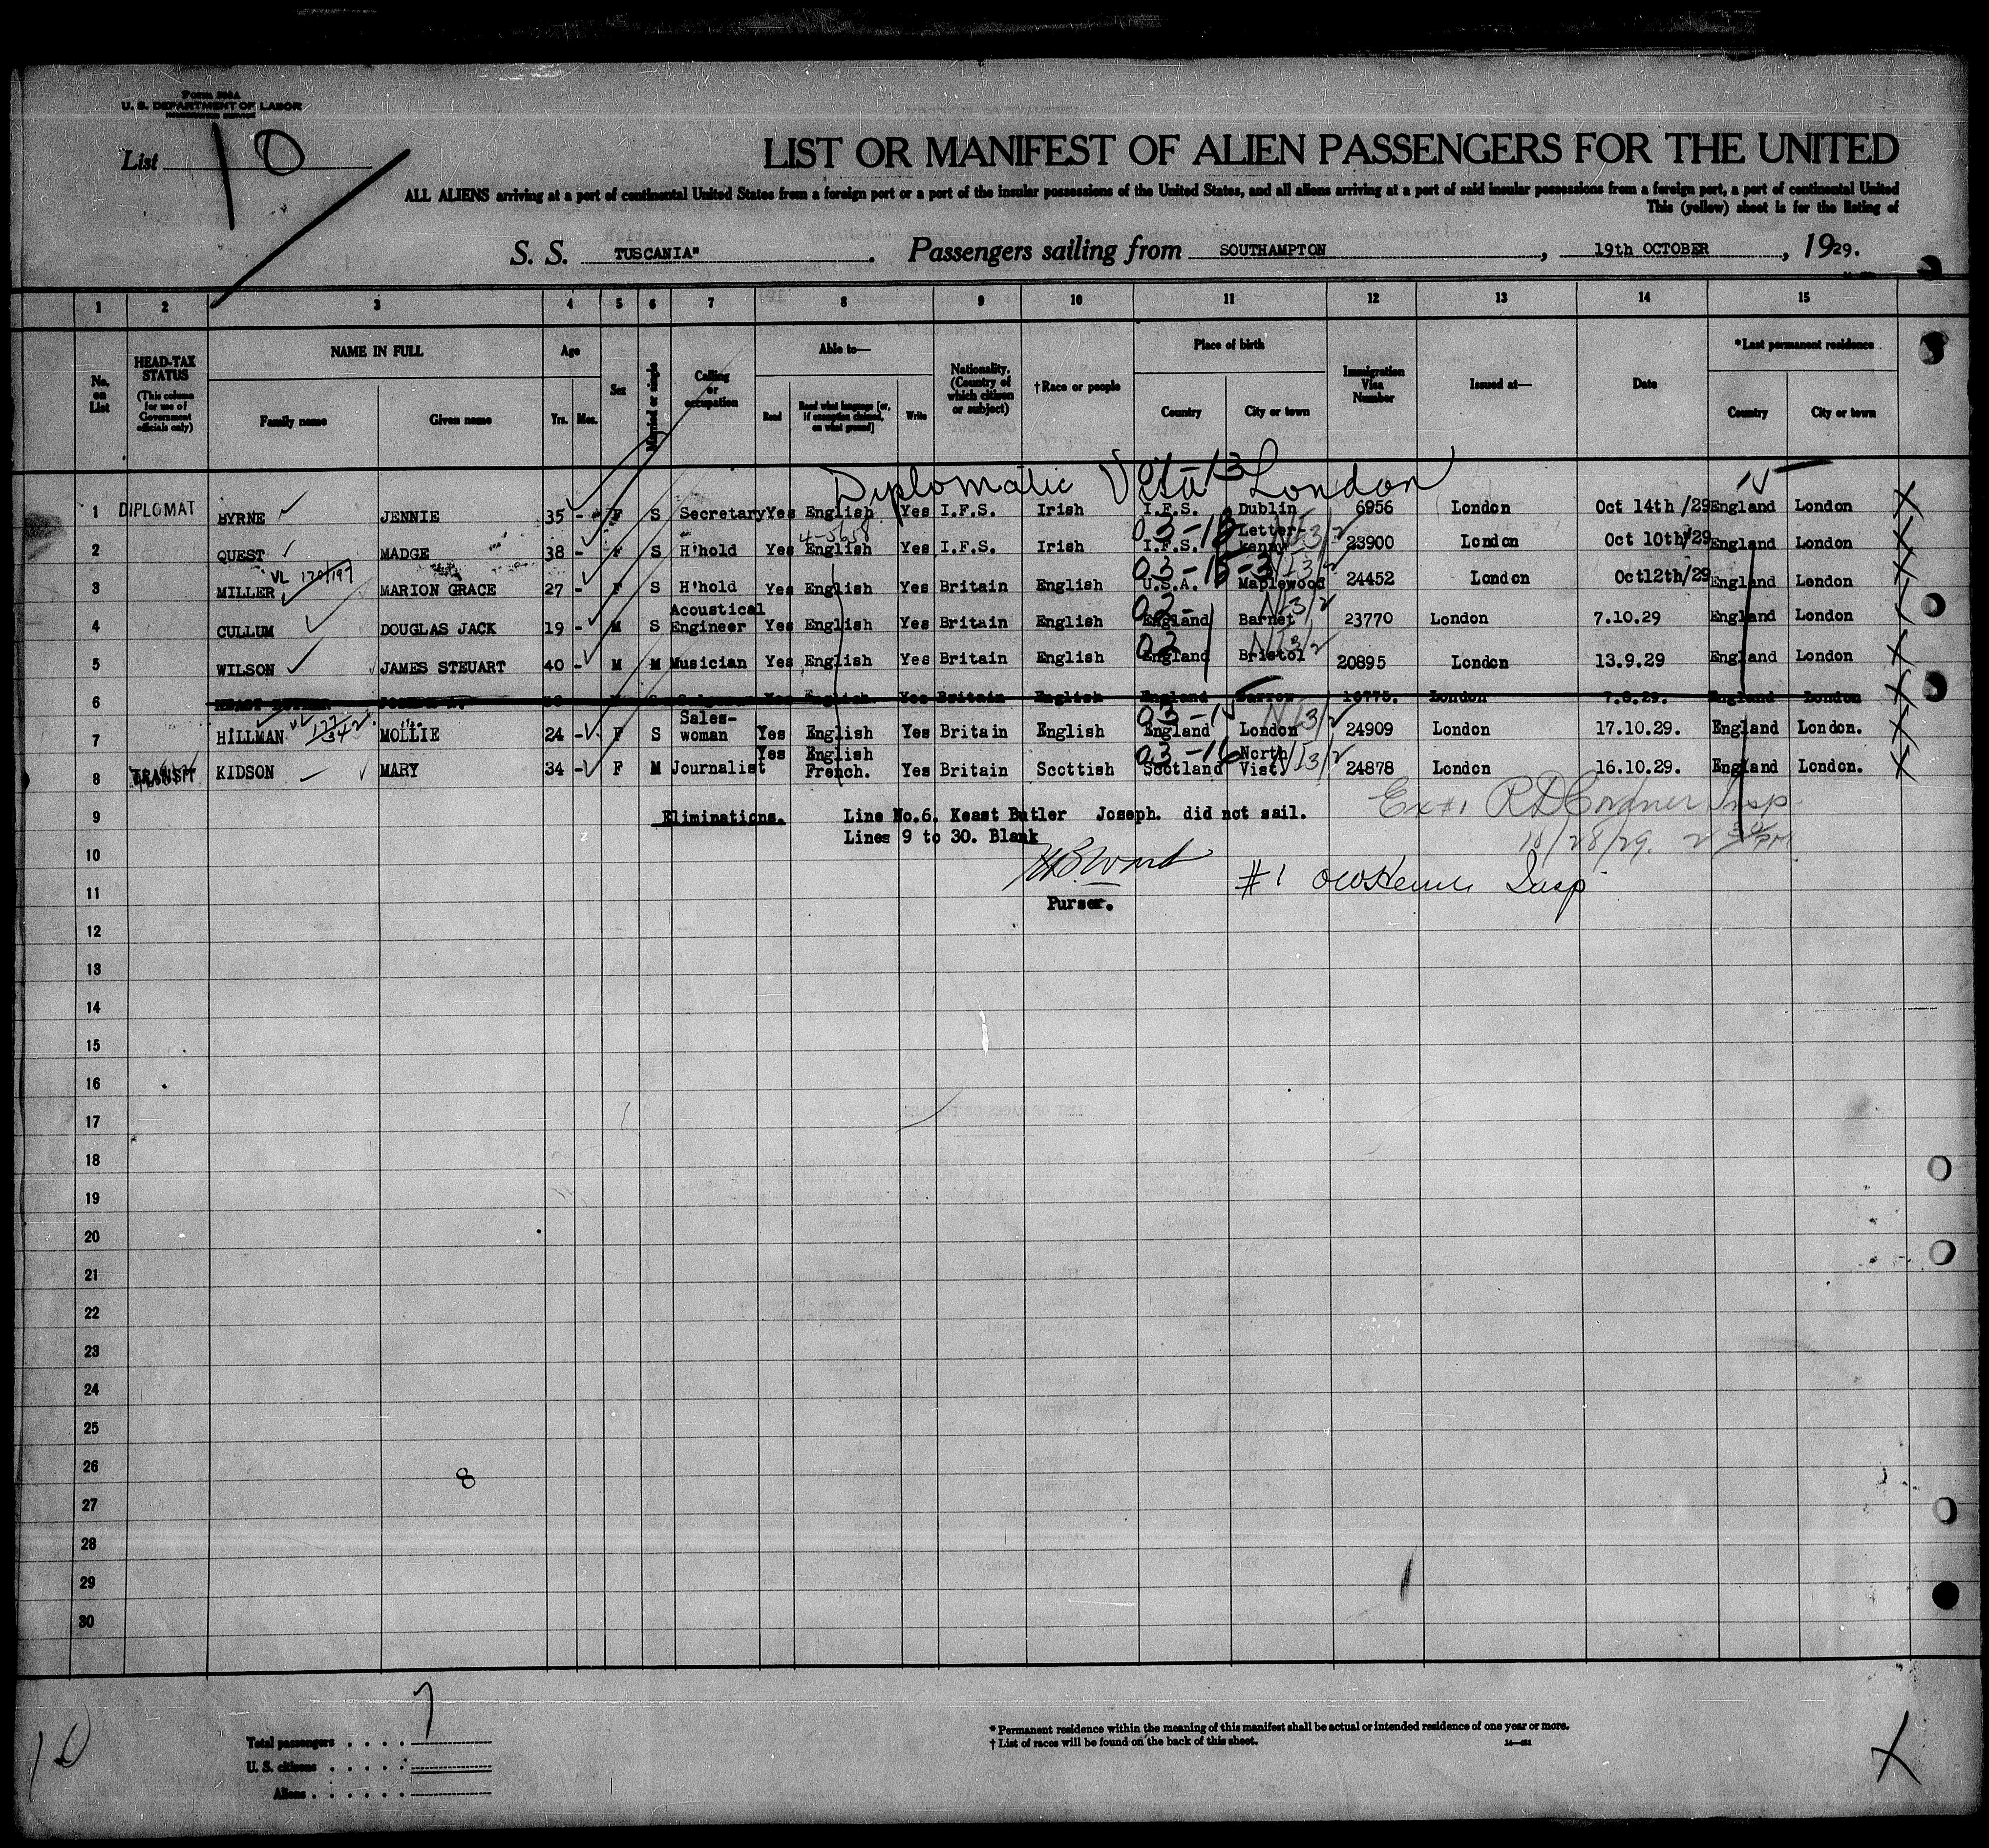 Form 500A
U. S. DEPARTMENT OF LABOR
List 10
LIST OR MANIFEST OF ALIEN PASSENGERS FOR THE UNITED
ALL ALIENS arriving at a port of continental United States from a foreign port or a port of the insular possessions of the United States, and all aliens arriving at a port of said insular possessions from a foreign port, a port of continental United
This (yellow) sheet is for the listing of
S. S. TUSCANIA" . Passengers sailing from SOUTHAMPTON , 19th OCTOBER , 1929.
1 2 3 4 5 6 7 8 9 10 11 12 13 14 15
No. on List
HEAD-TAX STATUS (This column for use of Government officials only)
NAME IN FULL
Family name Given name
Age
Yrs. Mos.
Sex
Married or single
Calling or occupation
Able to—
Read Read what language [or, if exemption claimed, on what ground] Write
Nationality. (Country of which citizen or subject)
†Race or people
Place of birth
Country City or town
Immigration Visa Number
Issued at—
Date
*Last permanent residence
Country City or town
Diplomatic Visa London
1 DIPLOMAT BYRNE JENNIE 35 - F S Secretary Yes English Yes I.F.S. Irish I.F.S. Dublin 6956 London Oct 14th /29 England London
2 QUEST MADGE 38 - F S H'hold Yes English Yes I.F.S. Irish I.F.S. Letter-kenny 23900 London Oct 10th/29 England London
VL 170/197
3 MILLER MARION GRACE 27 - F S H'hold Yes English Yes Britain English U.S.A. Maplewood 24452 London Oct12th/29 England London
4 CULLUM DOUGLAS JACK 19 - M S Acoustical Engineer Yes English Yes Britain English England Barnet 23770 London 7.10.29 England London
5 WILSON JAMES STEUART 40 - M M Musician Yes English Yes Britain English England Bristol 20895 London 13.9.29 England London
6 Yes English Yes Britain English England Barrow London England London
7 HILLMAN MOLLIE 24 - F S Sales-woman Yes English Yes Britain English England London 24909 London 17.10.29. England London.
8 TRANSIT KIDSON MARY 34 - F M Journalist Yes English French. Yes Britain Scottish Scotland North Vist. 24878 London 16.10.29. England London.
9 Eliminations. Line No.6. Keast Butler Joseph. did not sail.
Lines 9 to 30. Blank
10/28/29.
10
11 #1 Insp
Purser.
12
13
14
15
16
17
18
19
20
21
22
23
24
25
26
8
27
28
29
30
7
10
Total passengers
U. S. citizens
Aliens
* Permanent residence within the meaning of this manifest shall be actual or intended residence of one year or more.
† List of races will be found on the back of this sheet.
X